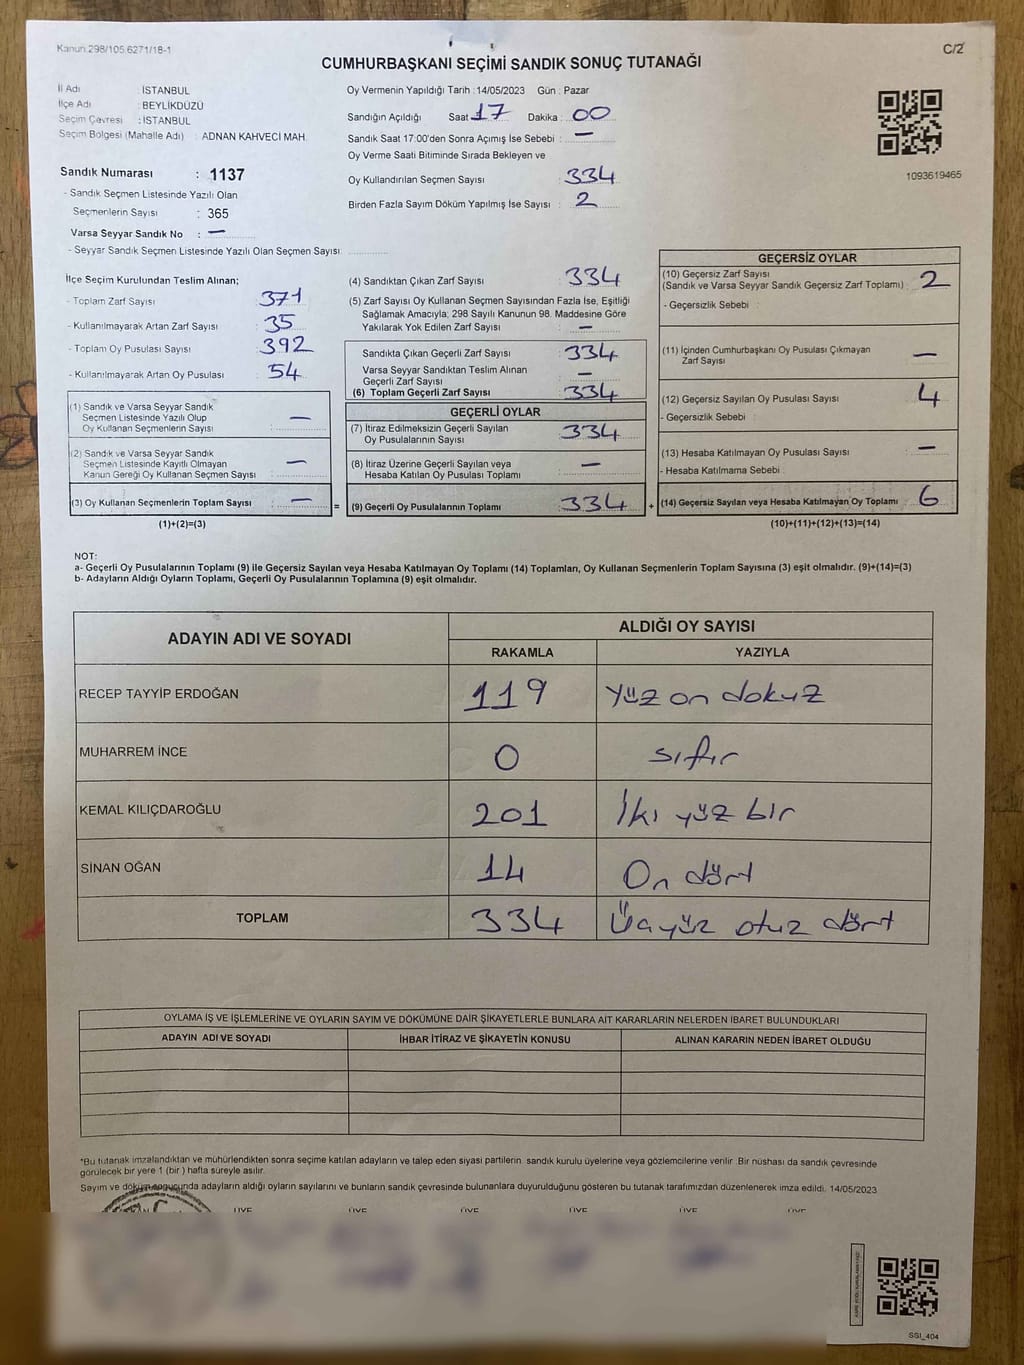 Kanun 298/105 6271/18-1
C/2
CUMHURBAŞKANI SEÇİMİ SANDIK SONUÇ TUTANAĞI
İl Adı : İSTANBUL
İlçe Adı : BEYLİKDÜZÜ
Seçim Çevresi : İSTANBUL
Seçim Bölgesi (Mahalle Adı) : ADNAN KAHVECİ MAH.
Sandık Numarası : 1137
- Sandık Seçmen Listesinde Yazılı Olan
Seçmenlerin Sayısı : 365
Varsa Seyyar Sandık No : —
- Seyyar Sandık Seçmen Listesinde Yazılı Olan Seçmen Sayısı:
Oy Vermenin Yapıldığı Tarih : 14/05/2023 Gün : Pazar
Sandığın Açıldığı Saat : 17 Dakika : 00
Sandık Saat 17:00'den Sonra Açımış İse Sebebi : —
Oy Verme Saati Bitiminde Sırada Bekleyen ve
Oy Kullandırılan Seçmen Sayısı : 334
Birden Fazla Sayım Döküm Yapılmış İse Sayısı : 2
1093619465
İlçe Seçim Kurulundan Teslim Alınan;
- Toplam Zarf Sayısı : 371
- Kullanılmayarak Artan Zarf Sayısı : 35
- Toplam Oy Pusulası Sayısı : 392
- Kullanılmayarak Artan Oy Pusulası : 54
(1) Sandık ve Varsa Seyyar Sandık
Seçmen Listesinde Yazılı Olup
Oy Kullanan Seçmenlerin Sayısı : —
(2) Sandık ve Varsa Seyyar Sandık
Seçmen Listesinde Kayıtlı Olmayan
Kanun Gereği Oy Kullanan Seçmen Sayısı : —
(3) Oy Kullanan Seçmenlerin Toplam Sayısı : —
(1)+(2)=(3)
(4) Sandıktan Çıkan Zarf Sayısı : 334
(5) Zarf Sayısı Oy Kullanan Seçmen Sayısından Fazla İse, Eşitliği
Sağlamak Amacıyla; 298 Sayılı Kanunun 98. Maddesine Göre
Yakılarak Yok Edilen Zarf Sayısı : —
Sandıkta Çıkan Geçerli Zarf Sayısı : 334
Varsa Seyyar Sandıktan Teslim Alınan
Geçerli Zarf Sayısı : —
(6) Toplam Geçerli Zarf Sayısı : 334
GEÇERLİ OYLAR
(7) İtiraz Edilmeksizin Geçerli Sayılan
Oy Pusulalarının Sayısı : 334
(8) İtiraz Üzerine Geçerli Sayılan veya
Hesaba Katılan Oy Pusulası Toplamı : —
= (9) Geçerli Oy Pusulalarının Toplamı : 334 +
GEÇERSİZ OYLAR
(10) Geçersiz Zarf Sayısı
(Sandık ve Varsa Seyyar Sandık Geçersiz Zarf Toplamı) : 2
- Geçersizlik Sebebi :
(11) İçinden Cumhurbaşkanı Oy Pusulası Çıkmayan
Zarf Sayısı : —
(12) Geçersiz Sayılan Oy Pusulası Sayısı : 4
- Geçersizlik Sebebi :
(13) Hesaba Katılmayan Oy Pusulası Sayısı : —
- Hesaba Katılmama Sebebi :
(14) Geçersiz Sayılan veya Hesaba Katılmayan Oy Toplamı : 6
(10)+(11)+(12)+(13)=(14)
NOT:
a- Geçerli Oy Pusulalarının Toplamı (9) ile Geçersiz Sayılan veya Hesaba Katılmayan Oy Toplamı (14) Toplamları, Oy Kullanan Seçmenlerin Toplam Sayısına (3) eşit olmalıdır. (9)+(14)=(3)
b- Adayların Aldığı Oyların Toplamı, Geçerli Oy Pusulalarının Toplamına (9) eşit olmalıdır.
ADAYIN ADI VE SOYADI
ALDIĞI OY SAYISI
RAKAMLA YAZIYLA
RECEP TAYYİP ERDOĞAN 119 yüz on dokuz
MUHARREM İNCE 0 sıfır
KEMAL KILIÇDAROĞLU 201 İki yüz bir
SİNAN OĞAN 14 On dört
TOPLAM 334 Üçyüz otuz dört
OYLAMA İŞ VE İŞLEMLERİNE VE OYLARIN SAYIM VE DÖKÜMÜNE DAİR ŞİKAYETLERLE BUNLARA AİT KARARLARIN NELERDEN İBARET BULUNDUKLARI
ADAYIN ADI VE SOYADI İHBAR İTİRAZ VE ŞİKAYETİN KONUSU ALINAN KARARIN NEDEN İBARET OLDUĞU
*Bu tutanak imzalandıktan ve mühürlendikten sonra seçime katılan adayların ve talep eden siyasi partilerin sandık kurulu üyelerine veya gözlemcilerine verilir. Bir nüshası da sandık çevresinde
görülecek bir yere 1 (bir) hafta süreyle asılır.
Sayım ve döküm sonucunda adayların aldığı oyların sayılarını ve bunların sandık çevresinde bulunanlara duyurulduğunu gösteren bu tutanak tarafımızdan düzenlenerek imza edildi. 14/05/2023
ÜYE ÜYE ÜYE ÜYE ÜYE ÜYE
SSI_404